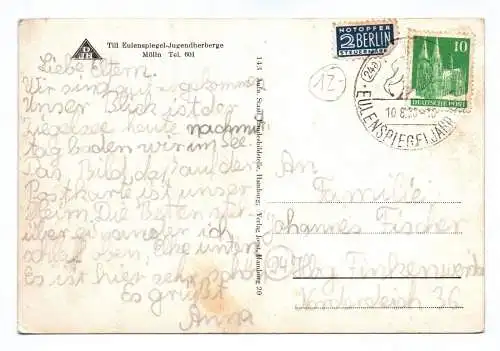 Till Eulenspiegel-Jugendherberge
Mölln Tel. 601
D
J H
Liebe Eltern.
Wir sind gut angekommen
Unser Blick ist der
Ziegelsee heute nachmit
tag baden wir im See.
Das Bild das auf der
Postkarte ist unser
Heim. Die Betten
über ich
schlaf oben, Elke unten
Es ist hier sehr schön
Es grüßt
Anna
143 Aufn. Staatl. Landesbildstelle, Hamburg; Verlag Hamburg 20
NOTOPFER
2 BERLIN
STEUERMARKE
10
DEUTSCHE POST
12
24a
10.8.
EULENSPIEGELJAHR
An
Familie
Johannes Fischer
Hbg Finkenwerder
Norderdeich 36